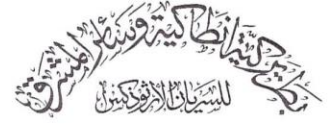 بطريركية أنطاكية وسائر المشرق
للسريان الأرثوذكس